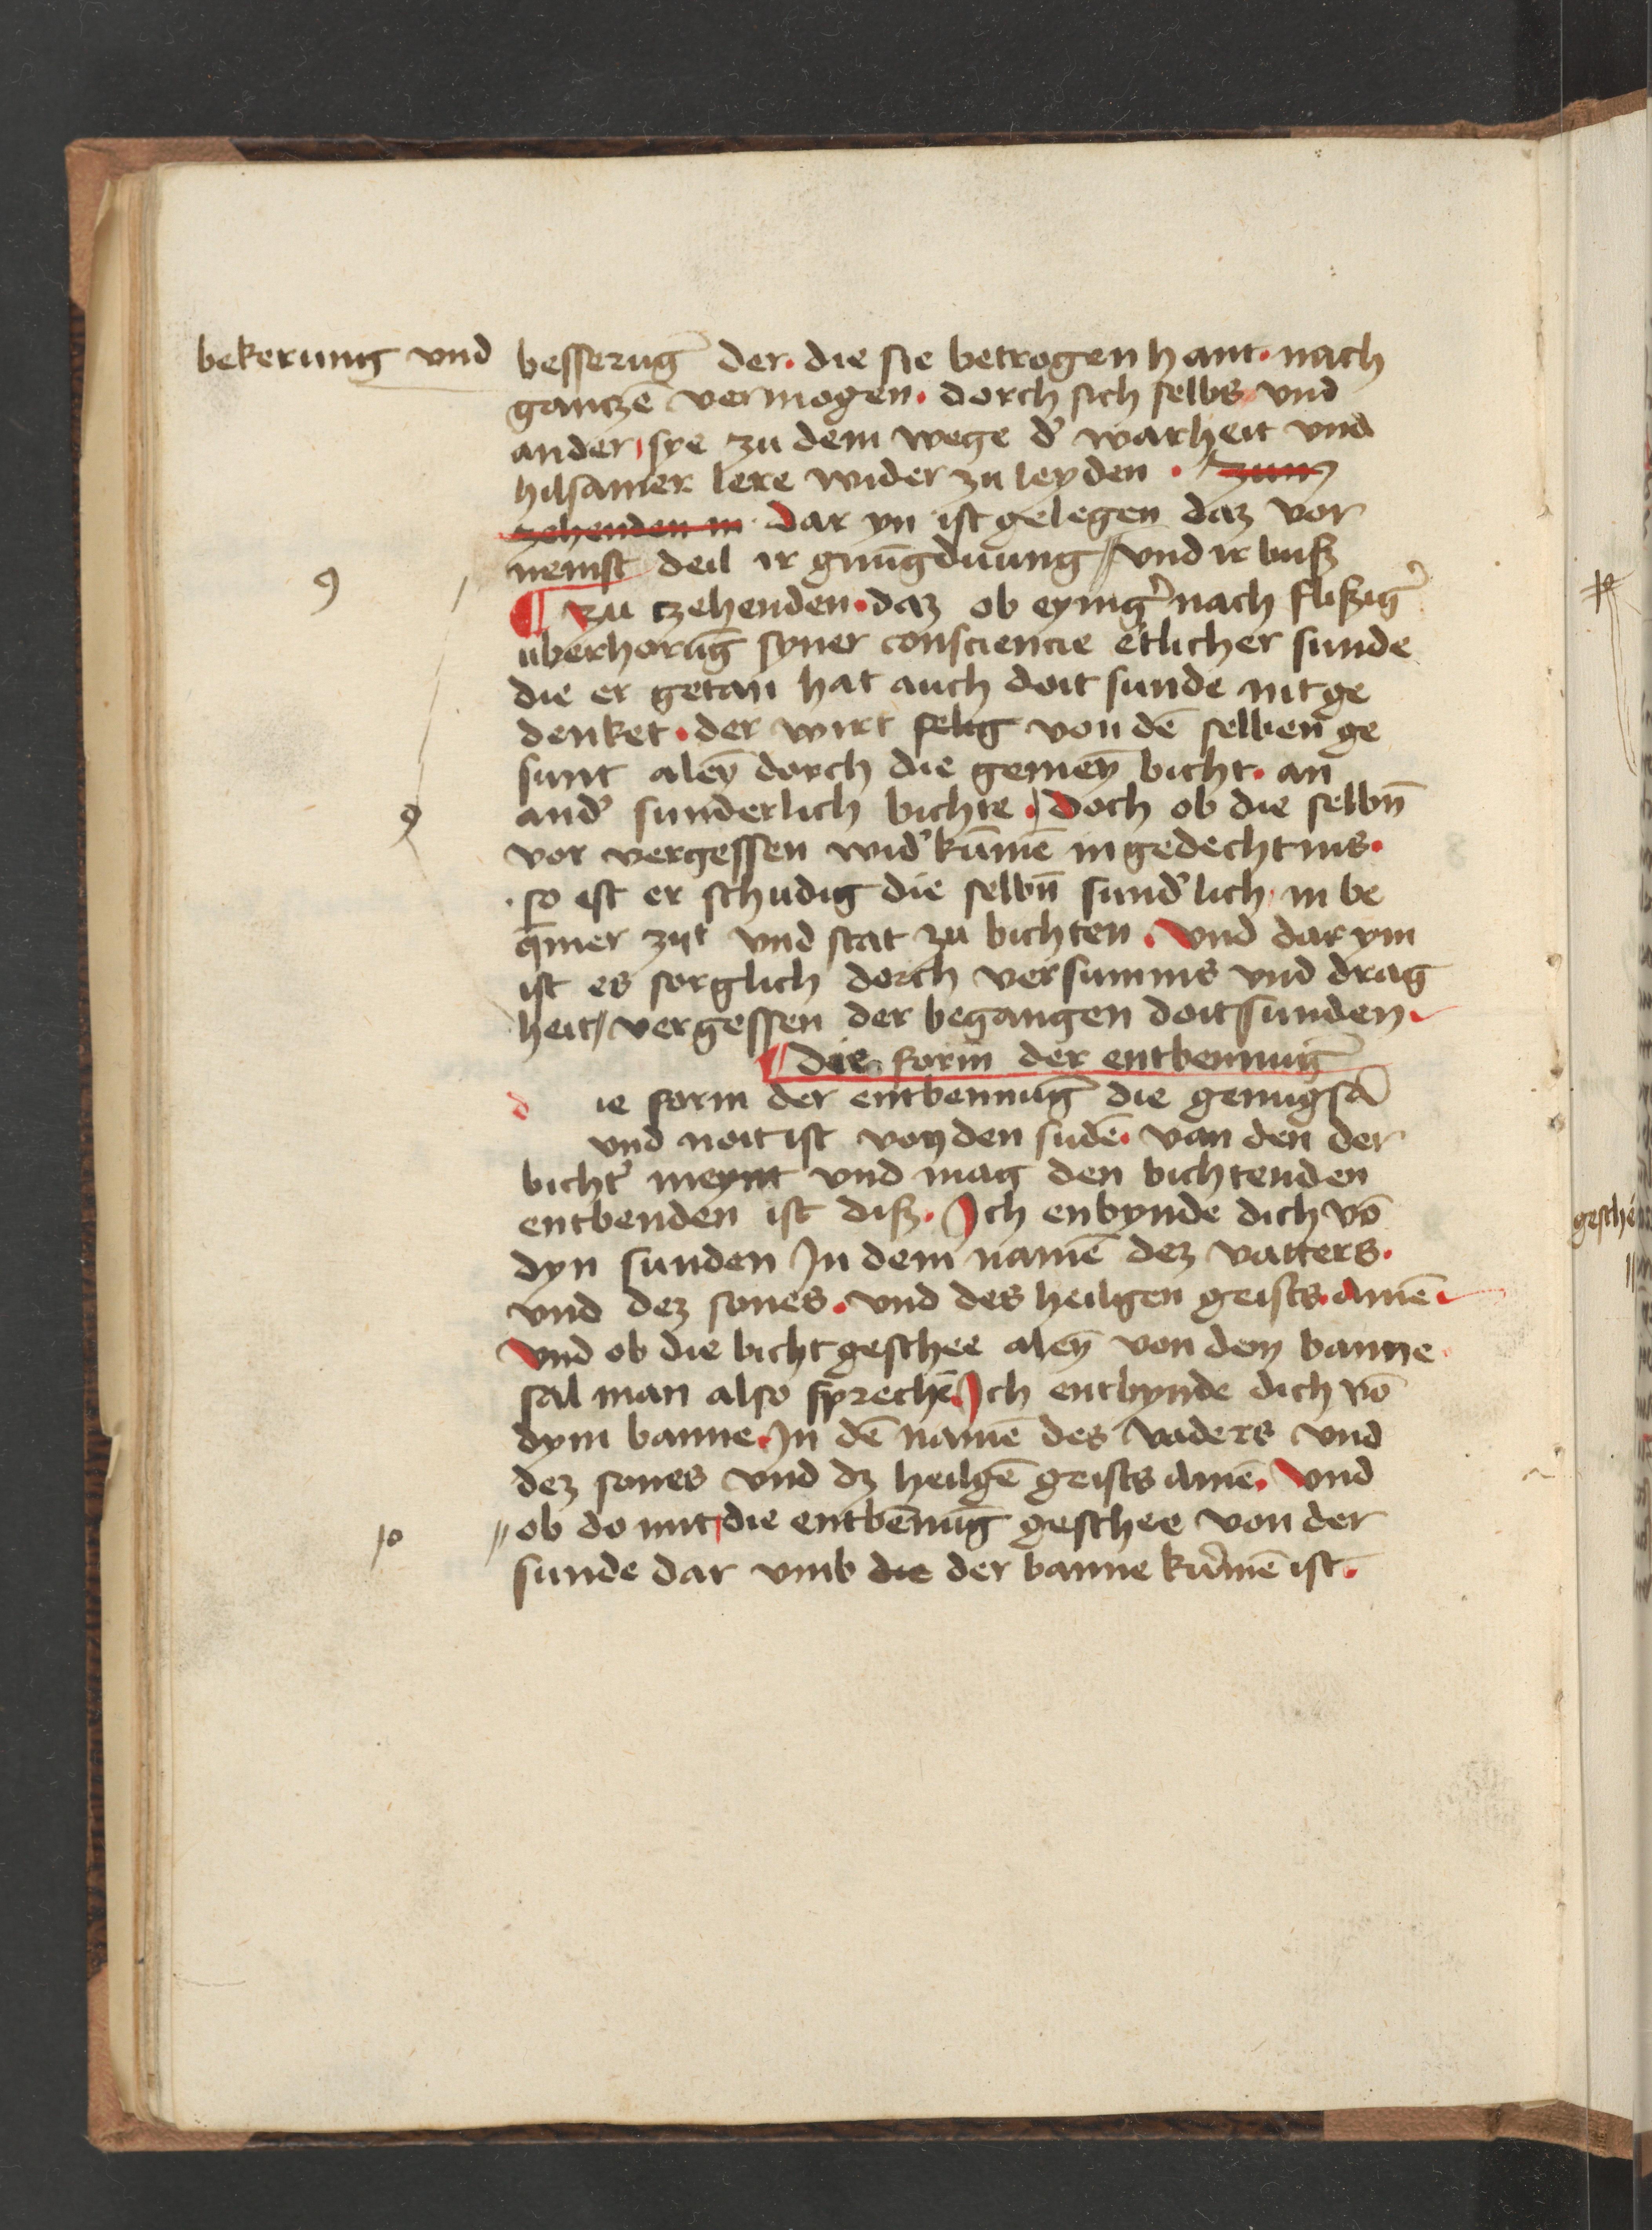 bekerung vnd besserūg der · die sie betrogen hant · nach
gantzē vermogen · dorch sich selbs vnd
ander sye zu dem wege d' warheit vnd
hilsamer lere wider zu leyden · zum
zehenden in dar yn ist gelegen daz vor
nemst deil ir gnūgduūng // vnd ir buß
9
¶ Zu tzehenden · daz ob eynig' nach flißig'
uberhorūg syner consciencie etlicher sunde
die er getan hat auch doit sunde nit ge
denket · der wirt selig von dē selben ge
sunt aleȳ dorch die gemeȳ bicht · an
9
and' sunderlich bichte · doch ob die selbn̄
vor vergessen wid' kūmē in gedechtnis ·
· so est er schudig die selbn̄ sund'lich in be
q̄mer zijt vnd stat zu bichten · Vnd dar vm
ist es sorglich dorch versumnis vnd drag
heit / vergessen der begangen doitsunden ·
¶ die form der entbennūg
d ie form der entbennūg die genugsā
vnd noit ist von den sūdē · van den der
bicht' meynt vnd mag den bichtenden
entbenden ist diß · Ich enbynde dich vō
dyn sunden In dem namē dez vatters ·
vnd dez sones · vnd des heiligen geists · Amē ·
Vnd ob die bicht geschee aleȳ von dem banne ·
sal man also sprechē · Ich entbynde dich vō
dym banne · In dē namē des vaders vnd
dez sones vnd dz heilgē geists Amē · Vnd
10 // ob do mit die entbēnūg geschee von der
sunde dar vmb die der banne kūmē ist ·